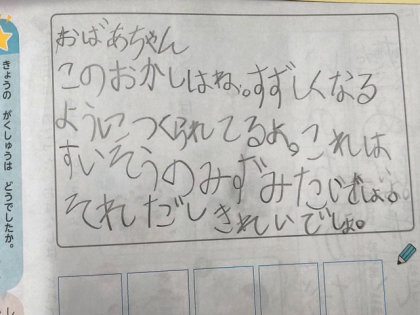 おばあちゃん
このおかしはね。すずしくなる
ようにつくられてるよ。これは
すいそうのみずみたいでしょ。
それだし きれいでしょ。
きょうの がくしゅうは どうでしたか。